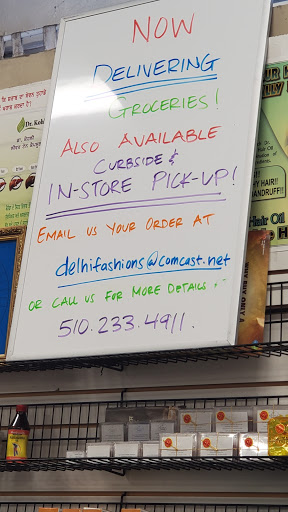 NOW
DELIVERING
GROCERIES!
ALSO AVAILABLE
CURBSIDE &
IN-STORE PICK-UP!
EMAIL US YOUR ORDER AT
delhifashions@comcast.net
OR CALL US FOR MORE DETAILS
510.233.4911.
Dr. Kohl
HY HAIR!!
DANDRUFF!!
Hair Oil